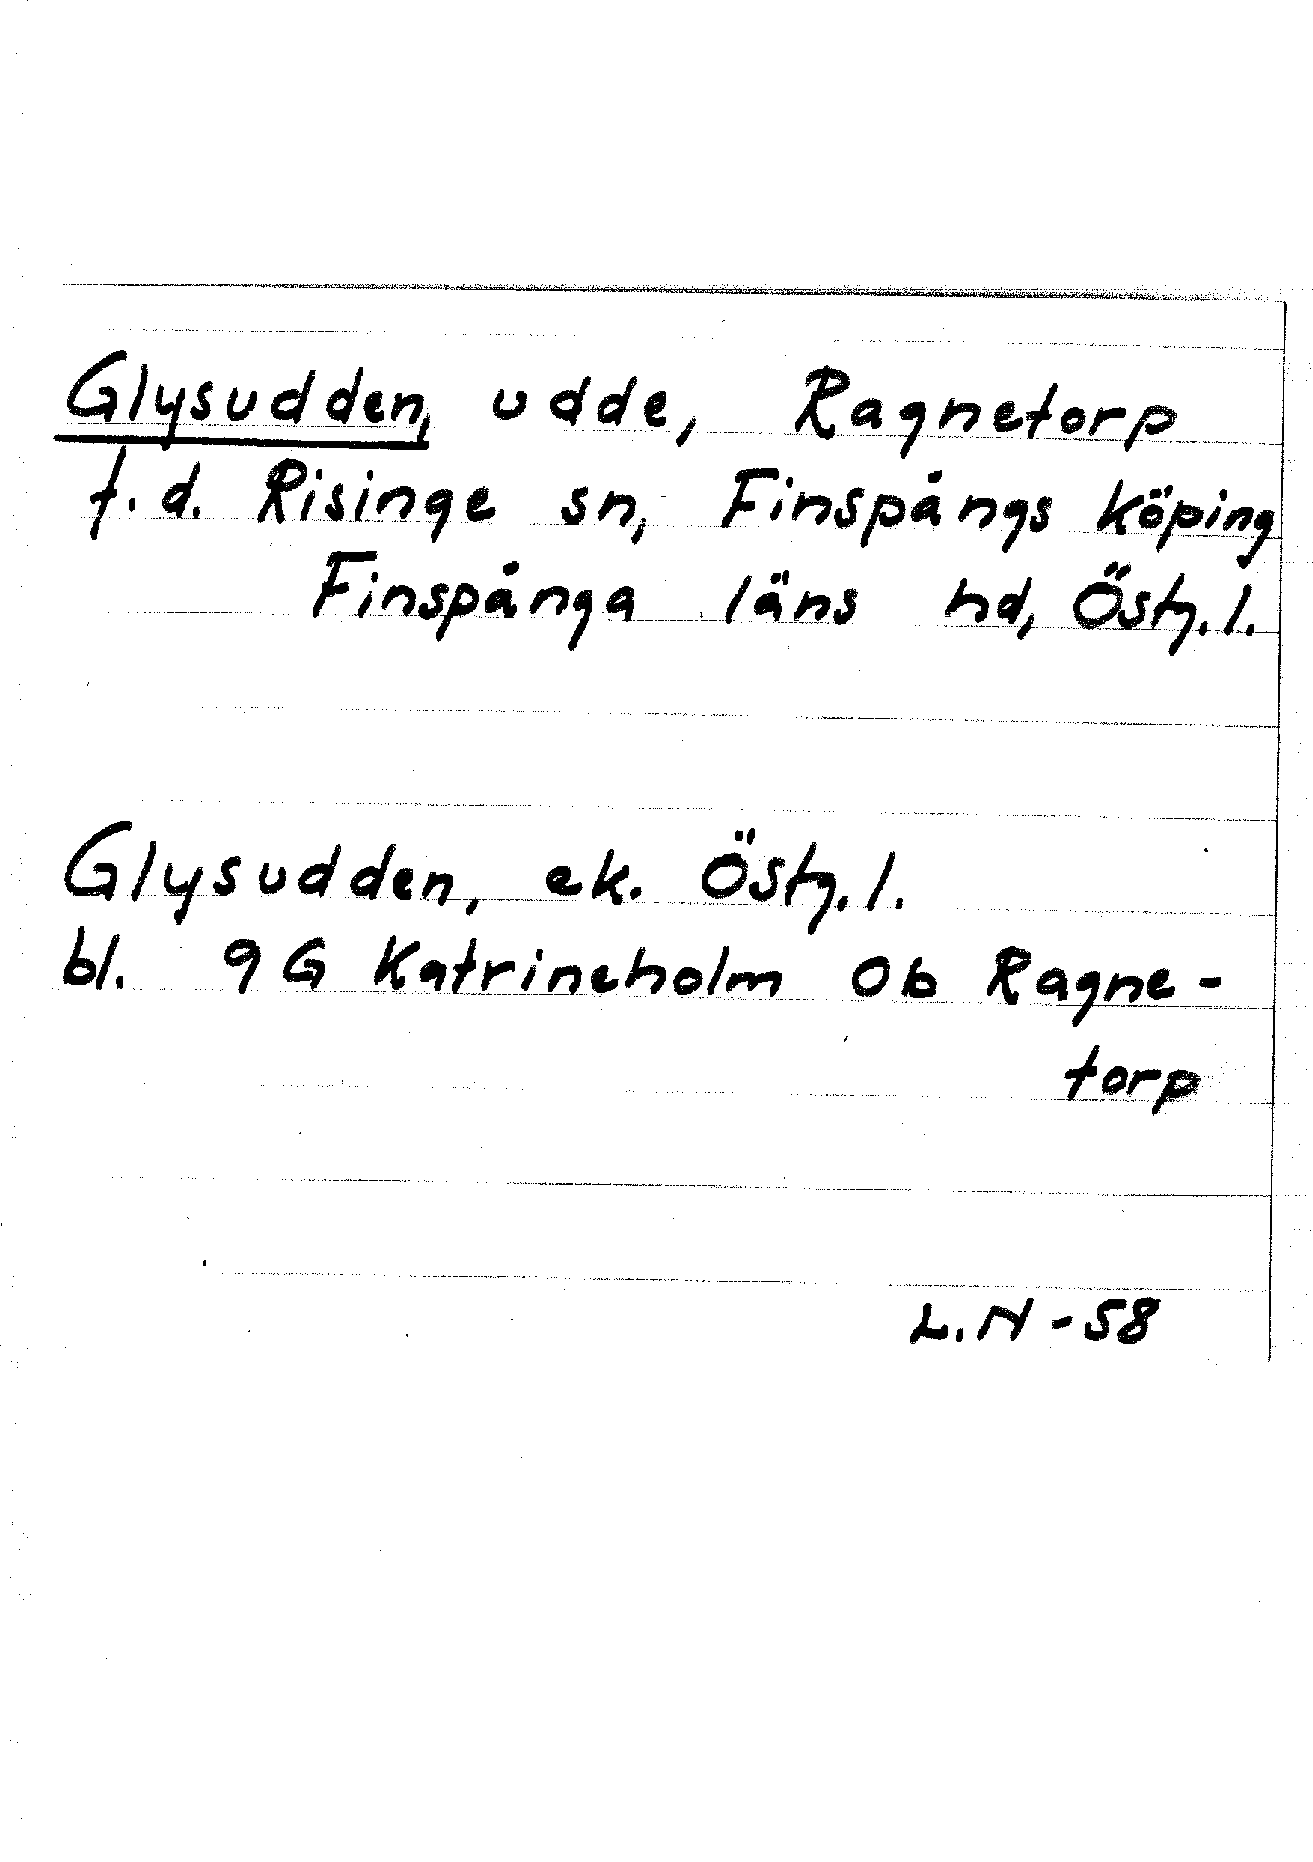 Glysudden, udde, Ragnetorp
f.d. Risinge sn, Finspångs köping
Finspånga läns hd, Östg.l.
Glysudden, ek. Östg.l.
bl. 9G Katrineholm 0b Ragne-
torp
L.N -58